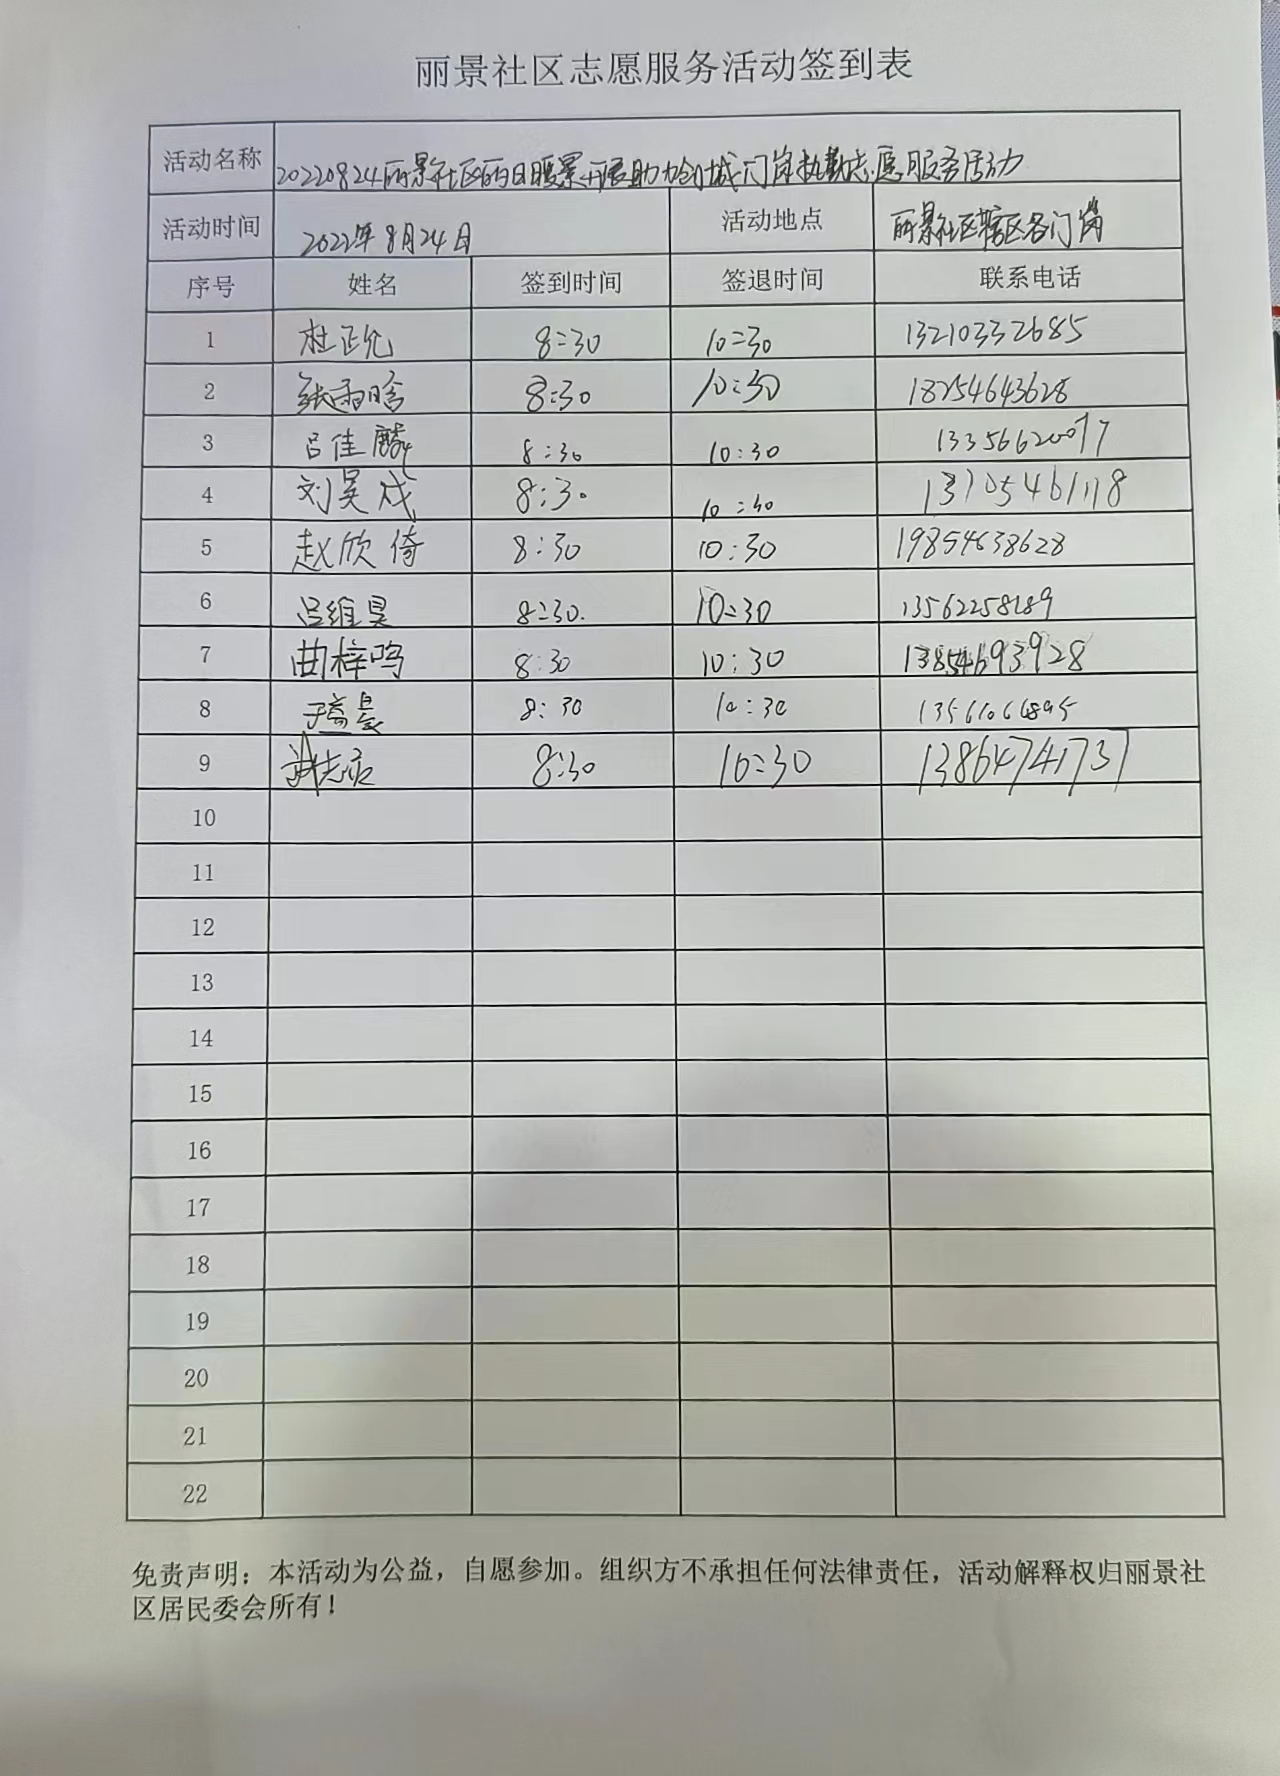 丽景社区志愿服务活动签到表
活动名称 20220824丽景社区丽日暖景开展助力创城门岗执勤志愿服务活动
活动时间 2022年8月24日 活动地点 丽景社区辖区各门岗
序号 姓名 签到时间 签退时间 联系电话
1 杜正允 8:30 10:30 13210332685
2 张雨晗 8:30 10:30 18254643628
3 吕佳麟 8:30 10:30 13356620077
4 刘昊成 8:30 10:30 13705461118
5 赵欣倚 8:30 10:30 19854638628
6 吕维昊 8:30. 10:30 13562258189
7 曲梓鸣 8:30 10:30 13854693928
8 8:30 10:30 13561066895
9 8:30 10:30 13864741737
10
11
12
13
14
15
16
17
18
19
20
21
22
免责声明：本活动为公益，自愿参加。组织方不承担任何法律责任，活动解释权归丽景社
区居民委会所有！